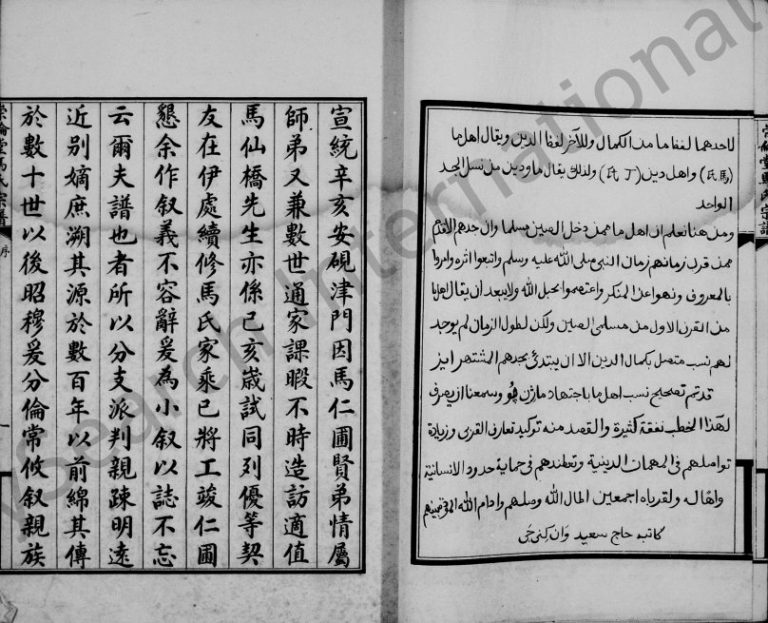 لاحدهما لفظا ما من الكمال وللآخر لفظ الدين ويقال اهل ما
(馬氏) واهل دين (丁氏) ولذلك يقال ما ودين من نسل الجد
الواحد
ومن هنا نعلم ان اهل ما ممن دخل الصين مسلما وان جدهم الاقدم
ممن قرب زمانهم زمان النبى صلى الله عليه وسلم واتبعوا اثره وامروا
بالمعروف ونهوا عن المنكر واعتصموا بحبل الله ولا يبعد ان يقال
من القرن الاول من مسلمى الصين ولكن لطول الزمان لم يوجد
لهم نسب متصل بكمال الدين الا ان يبتدئ بجدهم المشتهر
قد تم تصحيح نسب اهل ما باجتهاد وسمعنا ان يصرف
لهذا الخطب نفقة كثيرة والقصد منه توكيد تعارف القربى وزيادة
تواصلهم فى المهمات الدينية فى حماية حدود الانسانية
ولقرباه اجمعين اطال الله وصلهم وادام الله
كاتبه حاج سعيد وان
宣統辛亥安硯津門因馬仁圃賢弟情屬
師弟又兼數世通家課暇不時造訪適值
馬仙橋先生亦係己亥歲試同列優等契
友在伊處續修馬氏家乘已將工竣仁圃
懇余作叙義不容辭爰為小叙以誌不忘
云爾夫譜也者所以分支派判親疎明遠
近別嫡庶溯其源於數百年以前綿其傳
於數十世以後昭穆爰分倫常攸叙親族
崇倫堂馬氏宗譜
序
一